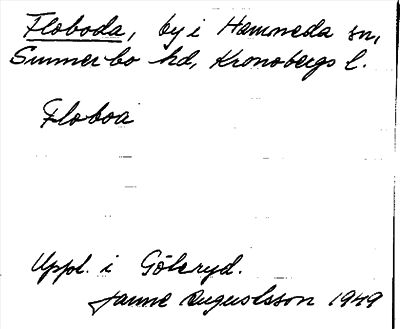 Floboda, by i Hamneda sn,
Sunnerbo hd, Kronobergs l.
Floboa
Uppl. i Göteryd.
Janne Augustsson 1949